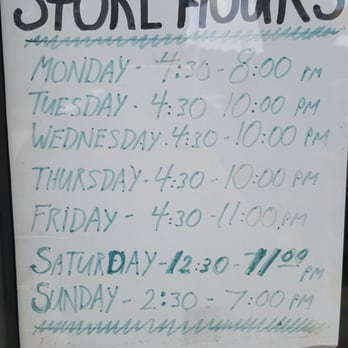 STORE HOURS
MONDAY - 4:30 - 8:00 PM
TUESDAY - 4:30 - 10:00 PM
WEDNESDAY - 4:30 - 10:00 PM
THURSDAY - 4:30 - 10:00 PM
FRIDAY - 4:30 - 11:00 PM
SATURDAY - 12:30 - 11:00 PM
SUNDAY - 2:30 - 7:00 PM